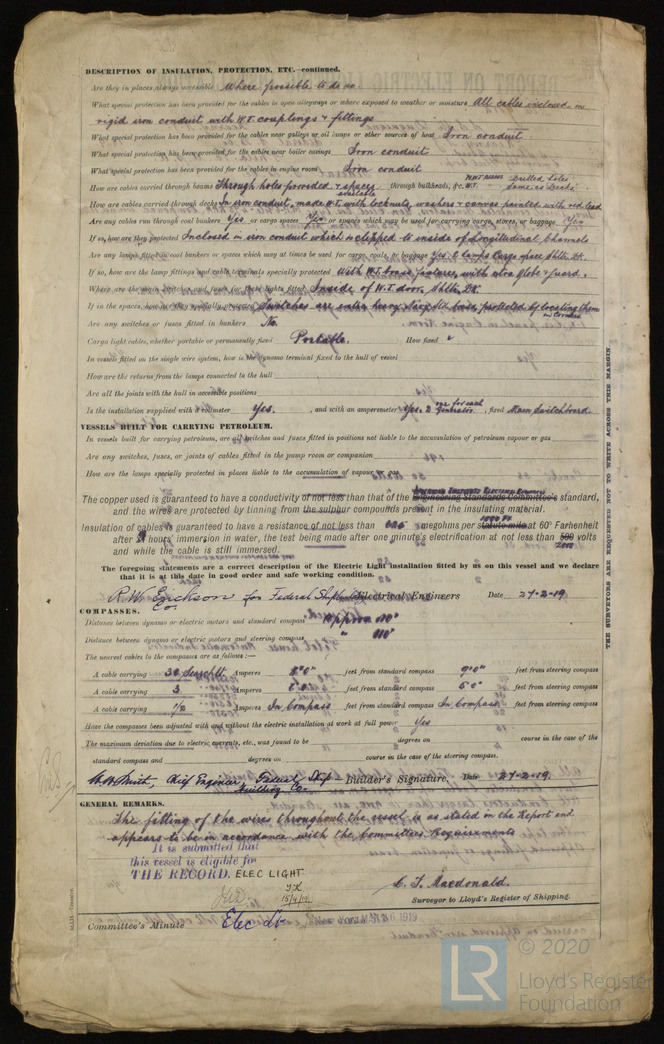 DESCRIPTION OF INSULATION, PROTECTION, ETC.—continued.
Are they in places always accessible Where possible to do so
What special protection has been provided for the cables in open alleyways or where exposed to weather or moisture All cables enclosed in
rigid iron conduit with W.T. couplings & fittings
What special protection has been provided for the cables near galleys or oil lamps or other sources of heat Iron conduit
What special protection has been provided for the cables near boiler casings Iron conduit
What special protection has been provided for the cables in engine room Iron conduit
How are cables carried through beams Through holes provided & spaces available through bulkheads, &c. W.T. Drilled holes same as Decks
How are cables carried through decks In iron conduit, made W.T. with locknuts, washers & canvas painted with red lead
Are any cables run through coal bunkers Yes or cargo spaces Yes or spaces which may be used for carrying cargo, stores, or baggage Yes
If so, how are they protected Inclosed in iron conduit which is clipped to inside of Longitudinal Channels
Are any lamps fitted in coal bunkers or spaces which may at times be used for cargo, coals, or baggage Yes Lamps Cargo space Shltr. Dk.
If so, how are the lamp fittings and cable terminals specially protected With W.T. brass fixtures, with globe & guard.
Where are the main switches and fuses for these lights fitted Inside of W.T. door, Shltr. Dk
If in the spaces, how are they specially protected Switches are extra heavy protected by locating them in corners
Are any switches or fuses fitted in bunkers No.
Cargo light cables, whether portable or permanently fixed Portable. How fixed
In vessels fitted on the single wire system, how is the dynamo terminal fixed to the hull of vessel
How are the returns from the lamps connected to the hull
Are all the joints with the hull in accessible positions
Is the installation supplied with a voltmeter Yes. , and with an amperemeter Yes. 2 one for each generator , fixed Main Switchboard.
VESSELS BUILT FOR CARRYING PETROLEUM.
In vessels built for carrying petroleum, are all switches and fuses fitted in positions not liable to the accumulation of petroleum vapour or gas
Are any switches, fuses, or joints of cables fitted in the pump room or companion
How are the lamps specially protected in places liable to the accumulation of vapour or gas
The copper used is guaranteed to have a conductivity of not less than that of the Engineering Standards Committee's standard,
and the wires are protected by tinning from the sulphur compounds present in the insulating material.
Insulation of cables is guaranteed to have a resistance of not less than megohms per statute mile 1000 FT. at 60° Farhenheit
after 24 hours immersion in water, the test being made after one minute's electrification at not less than 500 2000 volts
and while the cable is still immersed.
The foregoing statements are a correct description of the Electric Light installation fitted by us on this vessel and we declare
that it is at this date in good order and safe working condition.
R. W. Erickson for Federal Shipbuilding Co. Electrical Engineers Date 27-2-19
COMPASSES.
Distance between dynamo or electric motors and standard compass Approx 110'
Distance between dynamo or electric motors and steering compass " 110'
The nearest cables to the compasses are as follows:—
A cable carrying 30 Amperes 8'0" feet from standard compass 9'0" feet from steering compass
A cable carrying 3 Amperes feet from standard compass 6'0" feet from steering compass
A cable carrying 1/2 Amperes In Compass feet from standard compass In Compass feet from steering compass
Have the compasses been adjusted with and without the electric installation at work at full power Yes
The maximum deviation due to electric currents, etc., was found to be degrees on course in the case of the
standard compass and degrees on course in the case of the steering compass.
Smith, Chief Engineer, Federal Ship Building Co. Builder's Signature. Date 27-2-19.
GENERAL REMARKS.
The fitting of the wires throughout the vessel is as stated in the Report and
appears to be in accordance with the Committee's Requirements
It is submitted that
this vessel is eligible for
THE RECORD. ELEC LIGHT
15/4/19
C. F. Macdonald.
Surveyor to Lloyd's Register of Shipping.
Committee's Minute Elec Lt 1919
THE SURVEYORS ARE REQUESTED NOT TO WRITE ACROSS THIS MARGIN.
LR
© 2020
Lloyd's Register
Foundation